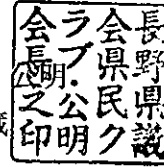 長野県議
会県民ク
ラブ・公明
会長之印